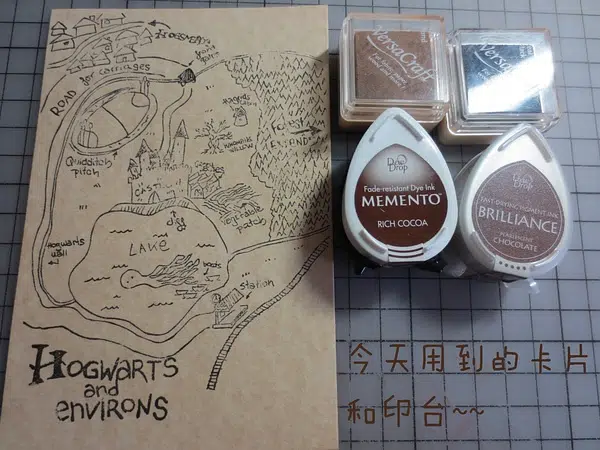 HOGSMEADE
front gates
ROAD for carriages
Quidditch pitch
HAGRID'S
WHOMPING WILLOW
FOREST
EXTENDS
CASTLE
cliff
vegetable patch
HOGWARTS wall
LAKE
boats
station
HOGWARTS
and
ENVIRONS
VersaCraft
VersaCraft
Dew Drop
Fade-resistant Dye Ink
MEMENTO
RICH COCOA
Dew Drop
FAST-DRYING PIGMENT INK
BRILLIANCE
PEARLESCENT
CHOCOLATE
今天用到的卡片
和印台~~